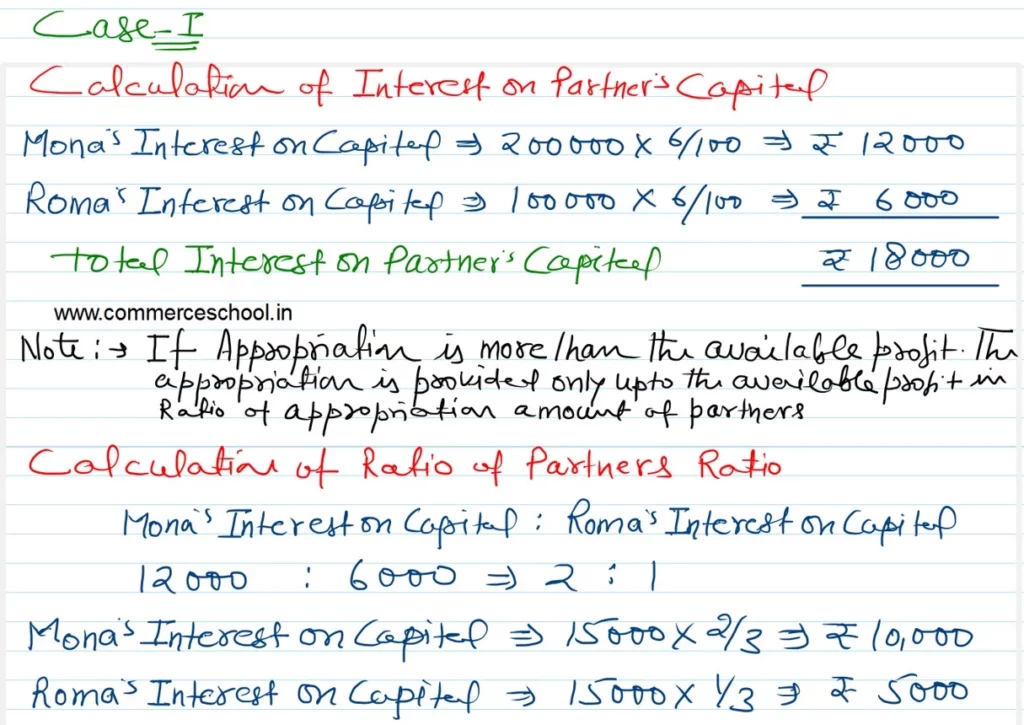 Case-I
Calculation of Interest on Partner's Capital
Mona's Interest on Capital ⇒ 200000 × 6/100 ⇒ ₹ 12000
Roma's Interest on Capital ⇒ 100000 × 6/100 ⇒ ₹ 6000
total Interest on Partner's Capital ₹ 18000
www.commerceschool.in
Note:→ If Appropriation is more than the available profit. The
appropriation is provided only upto the available profit in
Ratio of appropriation amount of partners
Calculation of Ratio of Partners Ratio
Mona's Interest on Capital : Roma's Interest on Capital
12000 : 6000 ⇒ 2 : 1
Mona's Interest on Capital ⇒ 15000 × 2/3 ⇒ ₹ 10,000
Roma's Interest on Capital ⇒ 15000 × 1/3 ⇒ ₹ 5000